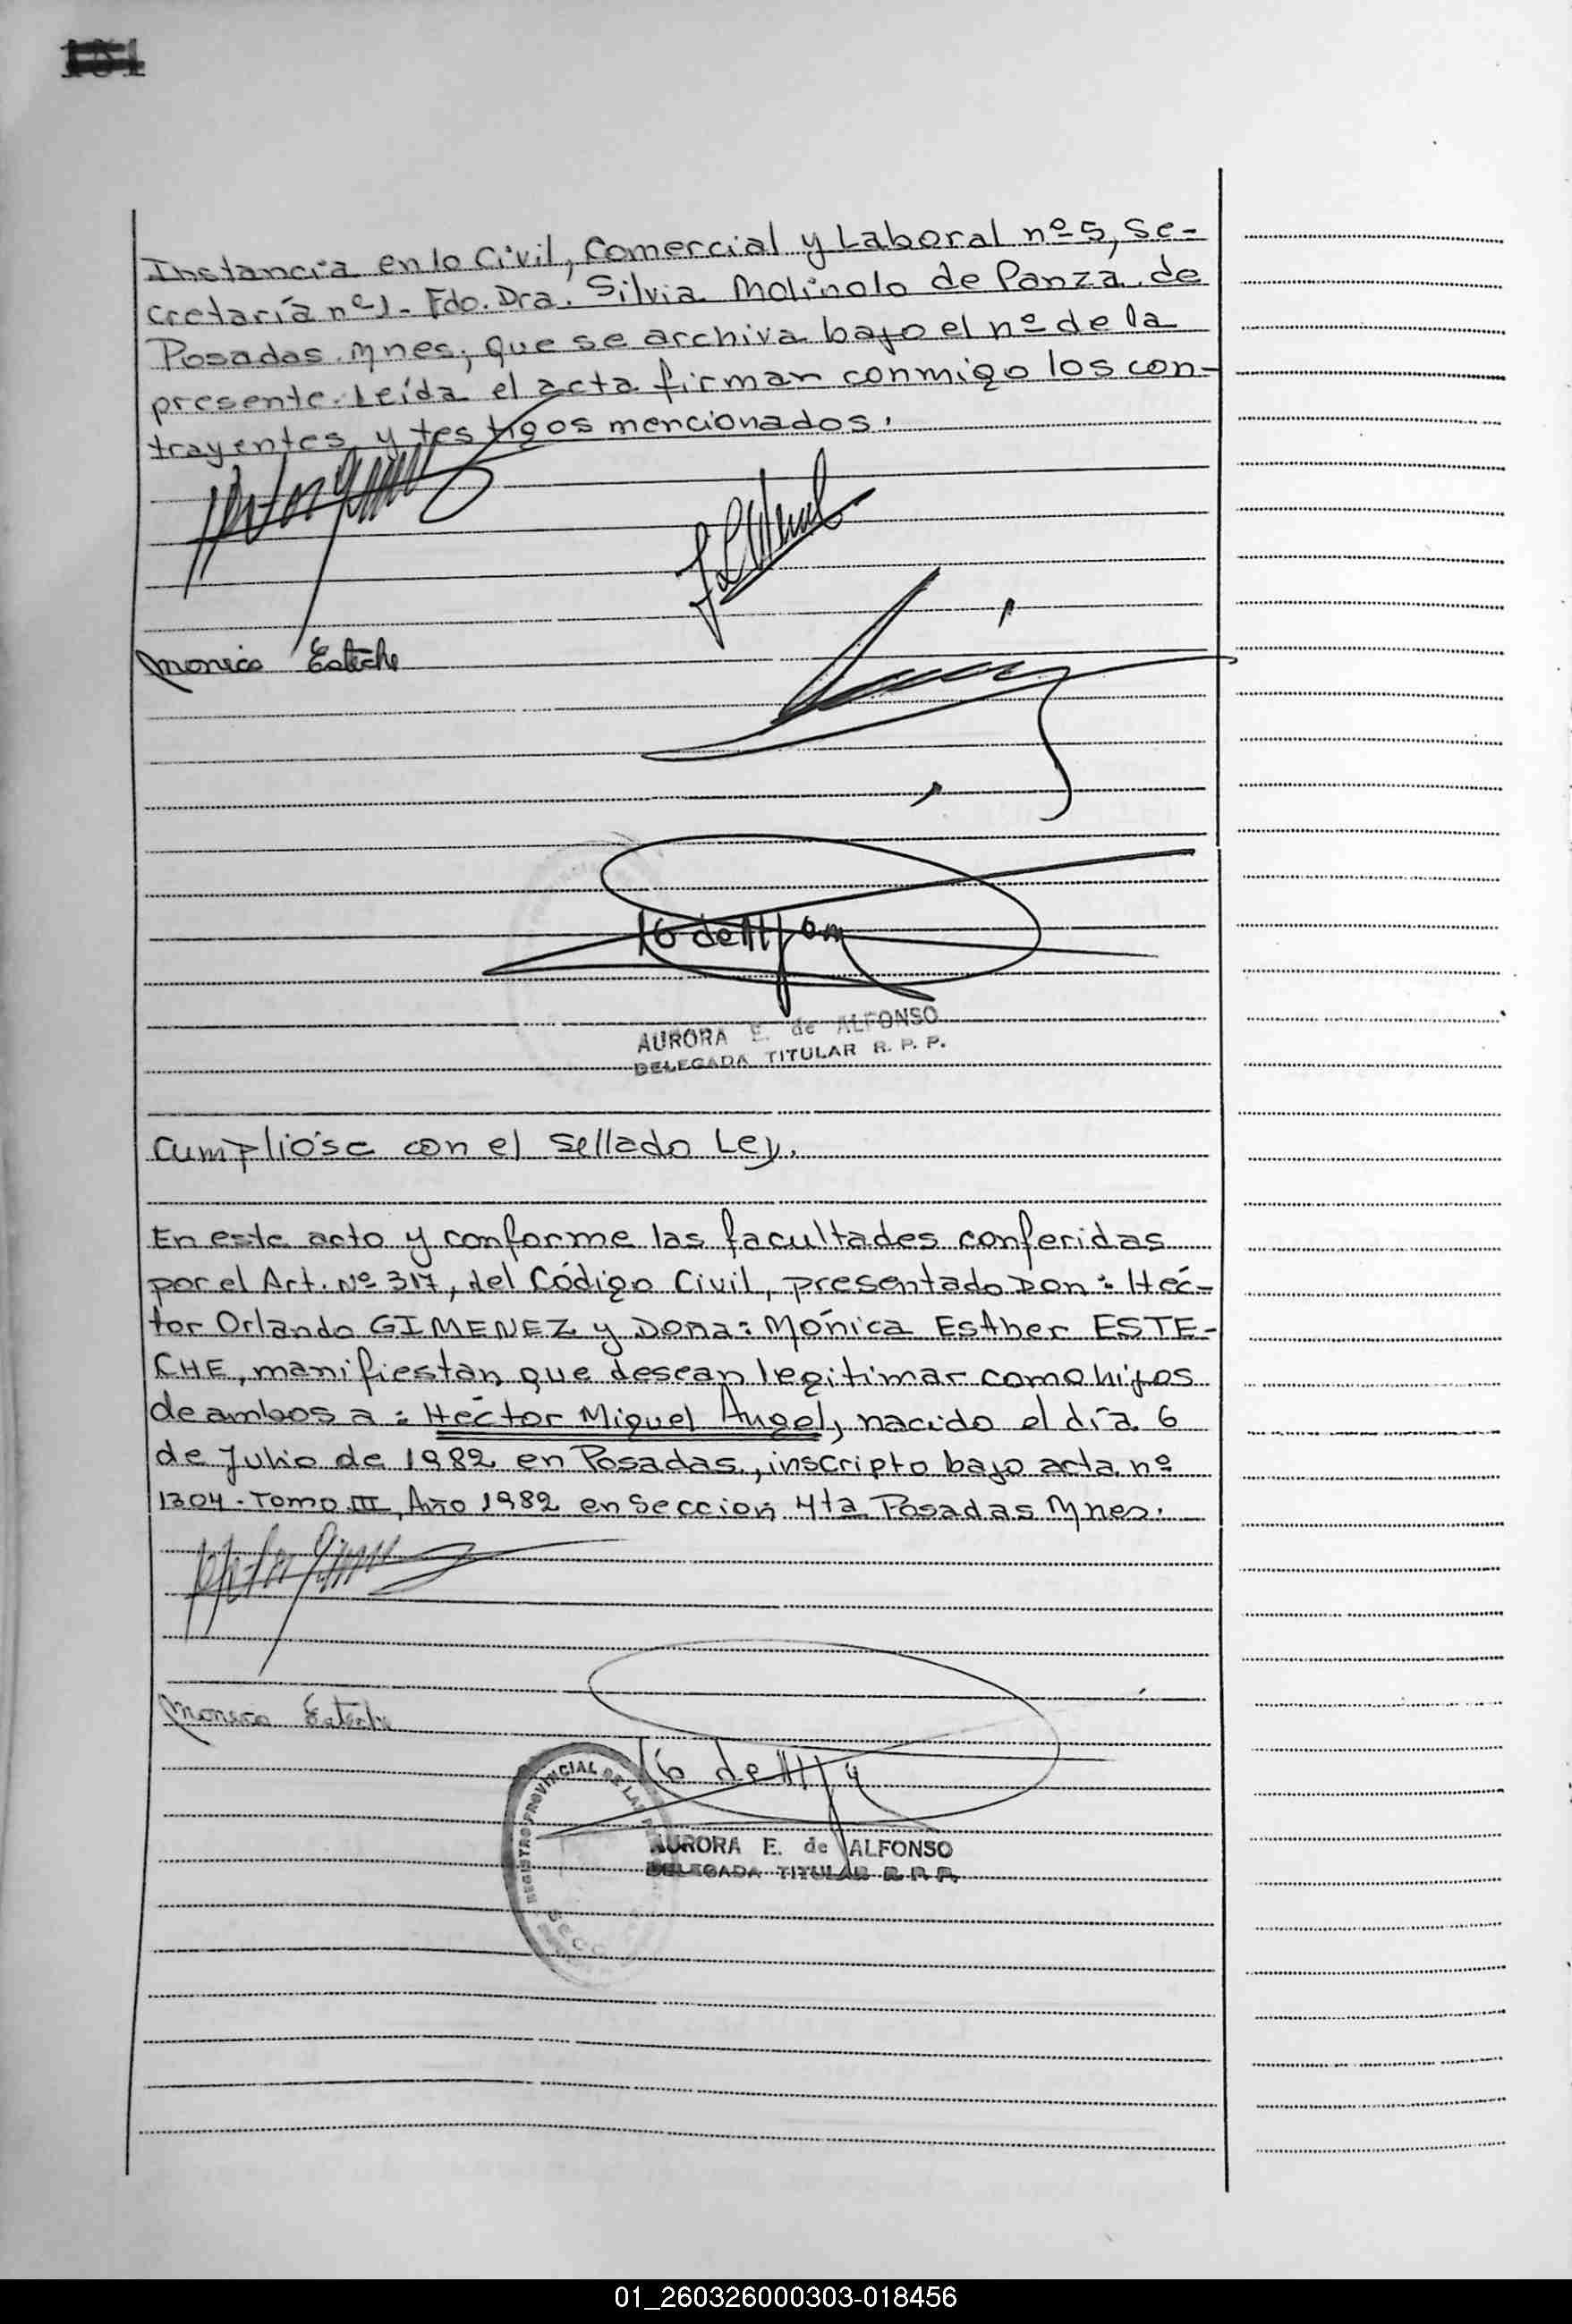 Instancia en lo Civil, Comercial y Laboral nº 5, Se-
cretaría nº 1. Fdo. Dra. Silvia Molinolo de Panza, de
Posadas Mnes, que se archiva bajo el nº de la
presente. Leída el acta firman conmigo los con-
trayentes y testigos mencionados.
Monica Esteche
AURORA E. de ALFONSO
DELEGADA TITULAR R. P. P.
Cumplióse con el sellado Ley.
En este acto y conforme las facultades conferidas
por el Art. Nº 317, del Código Civil, presentado Don: Héc-
tor Orlando GIMENEZ y Doña: Mónica Esther ESTE-
CHE, manifiestan que desean legitimar como hijos
de ambos a: Héctor Miguel Angel, nacido el día 6
de Julio de 1982 en Posadas, inscripto bajo acta nº
1304. Tomo III, Año 1982 en Sección 4ta Posadas Mnes.
Monica Esteche
REGISTRO PROVINCIAL DE LAS
AURORA E. de ALFONSO
DELEGADA TITULAR R. P. P.
01_260326000303-018456